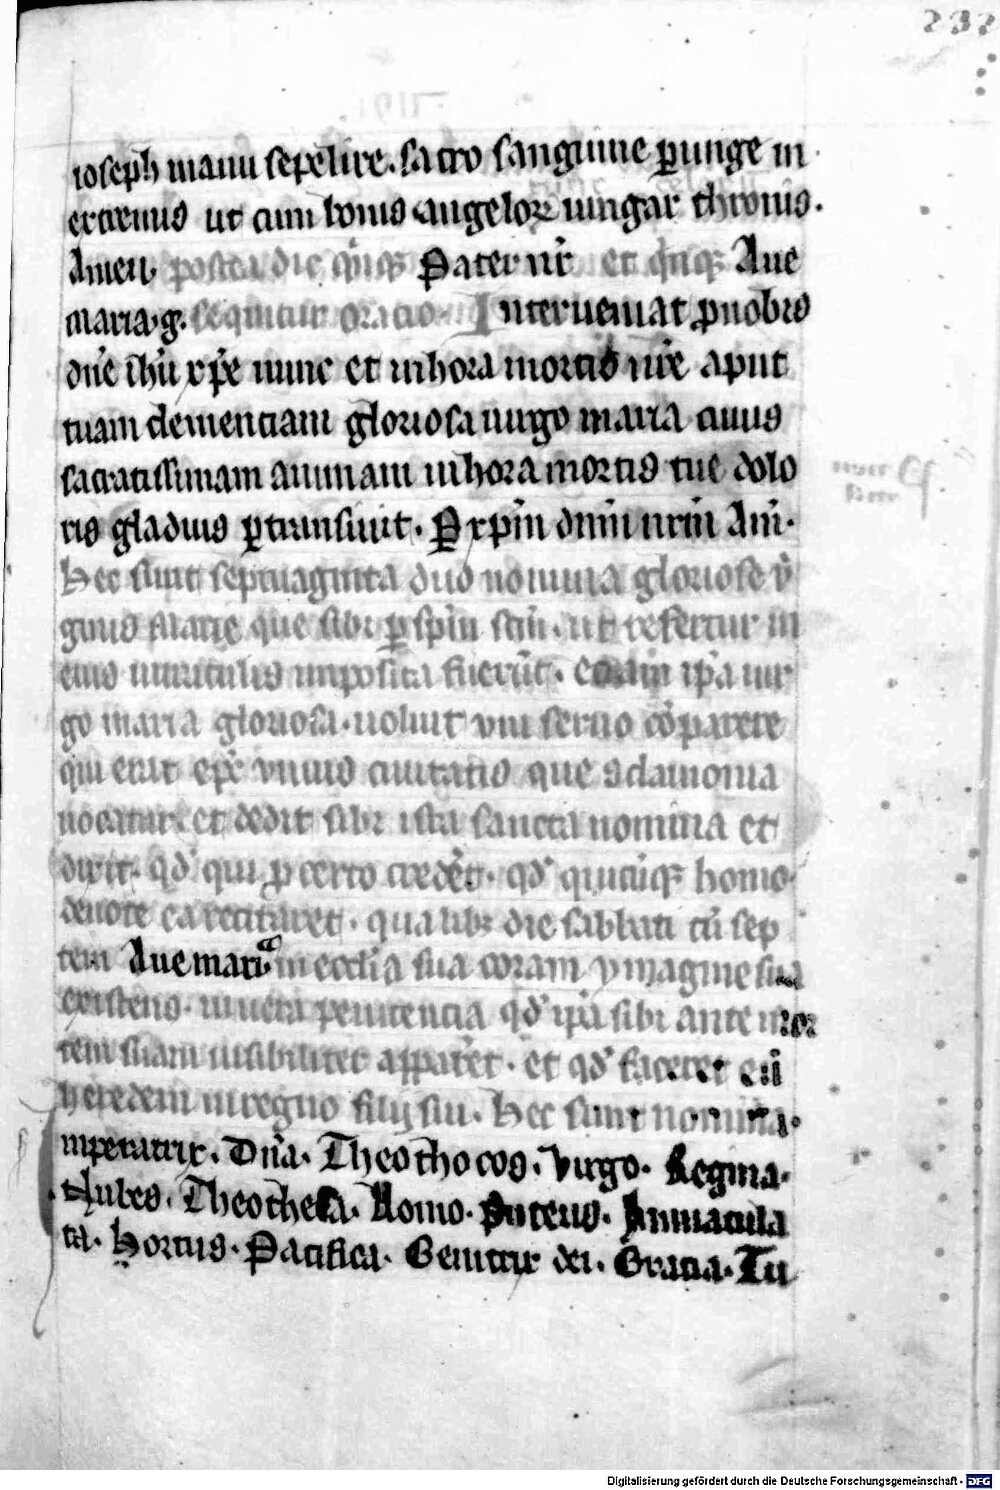 232
ioseph manu sepelire. sacro sanguine ꝑunge in
extremis ut cum bonis angeloꝝ iungar thronis.
Amen. postea dic qͥnqꝫ Pater nr̄ et qͥnqꝫ Aue
maria. g. sequitur oracio. Interueniat ꝓ nobis
dn̄e ih̄u xp̄e nunc et in hora mortis nr̄e aput
tuam clemenciam gloriosa uirgo maria cuius
sacratissimam animam in hora mortis tue dolo
ris gladius ꝑtransiuit. P xp̄m dn̄m nr̄m Am̄.
Hec sunt septuaginta duo nomina gloriose v̄
ginis Marie que sibi ꝑ sp̄m sc̄m. ut refertur in
eius miraculis imposita fuerūt. Etiam ip̄a uir
go maria gloriosa. uoluit vni seruo cōparere
qui erat ep̄c vnius ciuitatis que sclauonia
uocatur. et dedit sibi ista sancta nomina et
dixit. qd̄ qui ꝓ certo crederet. qd̄ quicūqꝫ homo
deuote ea recitaret. qualibꝫ die sabbati cū sep
tem Aue maria in eccl̄ia sua coram ymagine sua
existens. in uera penitencia qd̄ ip̄a sibi ante mor
tem suam uisibiliter apparet. et qd̄ faceret eū
heredem in regno filij sui. Hec sunt nomina.
inperatrix. Dn̄a. Theothocos. virgo. Regina.
Nubes. Theotheca. Homo. Puteus. Inmacula
ta. Hortus. Pacifica. Genitrix dei. Gracia. Tu
Digitalisierung gefördert durch die Deutsche Forschungsgemeinschaft - DFG